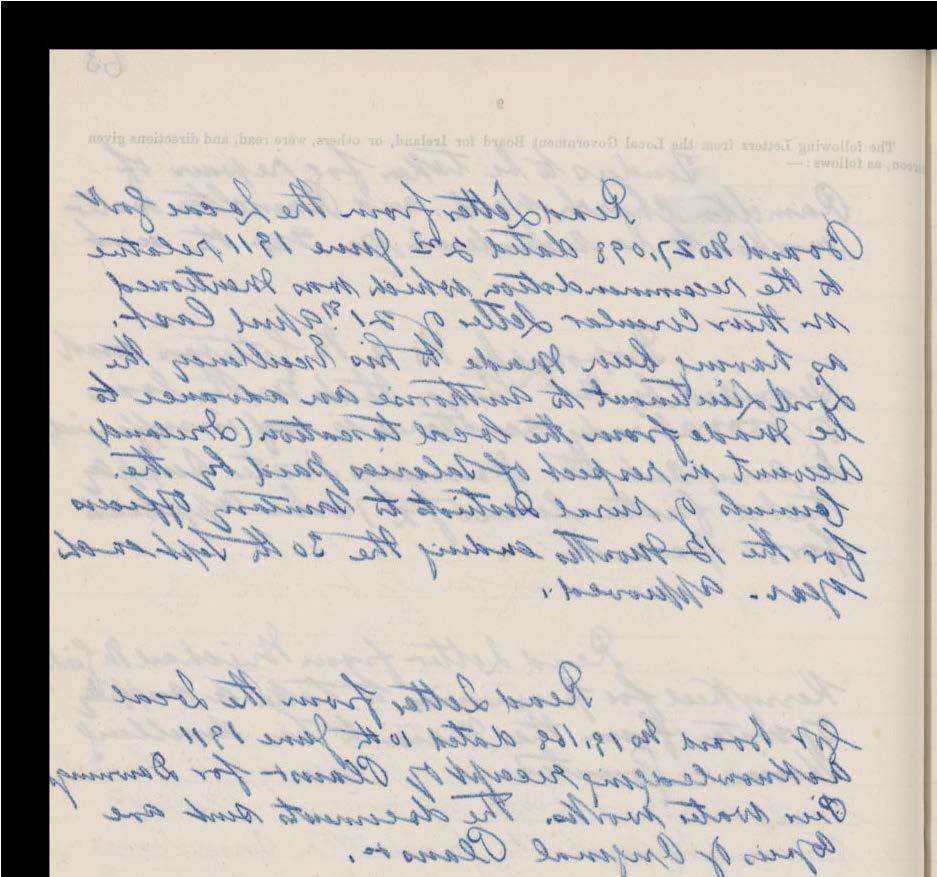 63
9
The following Letters from the Local Government Board for Ireland, or others, were read; and directions given
ereon, as follows:—
Read Letter from the Local Govt
Board No 27,098 dated 2nd June 1911 relative
to the recommendation which was mentioned
in their Circular Letter of 21st April last.
as having been made to his Excellency the
Lord Lieutenant to authorise an advance to
be made from the local taxation (Ireland)
Account in respect of Salaries paid by the
Councils of Rural Districts to Sanitary Officers
for the 12 Months ending the 30th Sept each
year. Approved.
Read Letter from the Local
Govt Board No 19,162 dated 10th June 1911
acknowledging receipt of Plans for Downings
Pier Water Works. The documents sent are
Copies of Original Plans